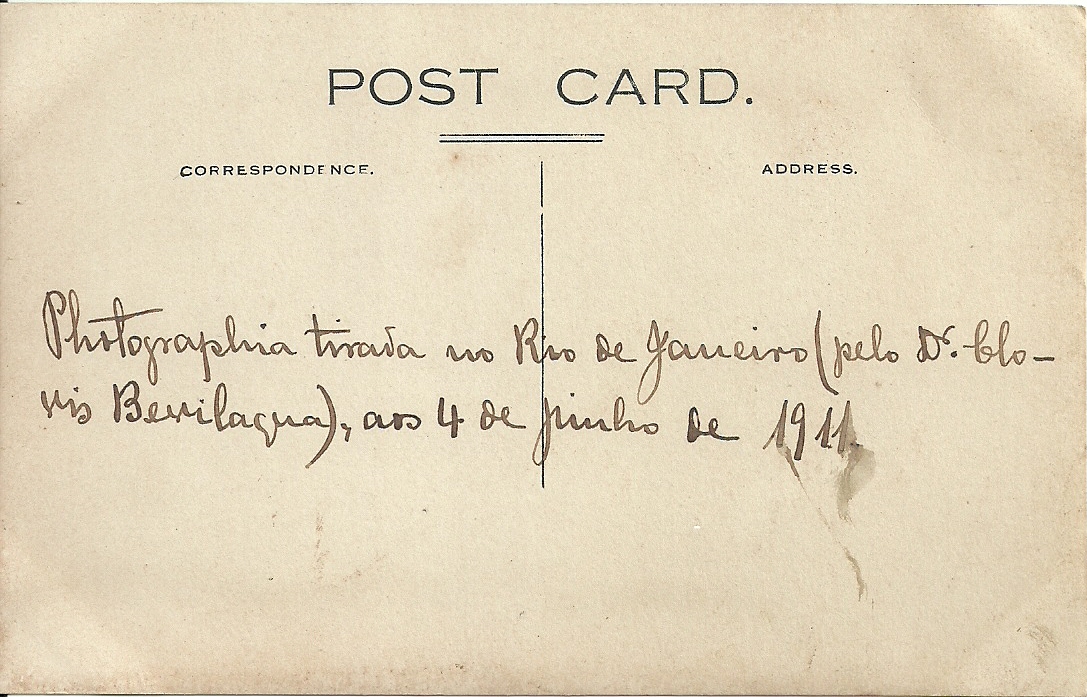 POST CARD.
CORRESPONDENCE.
ADDRESS.
Photographia tirada no Rio de Janeiro (pelo Dr. Clo-
vis Bevilaqua), aos 4 de junho de 1911.